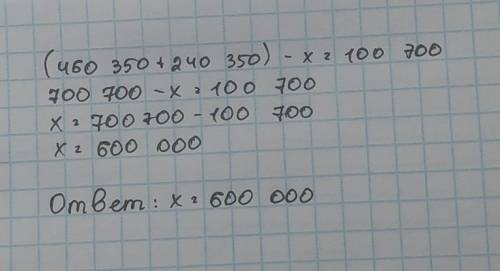 (460 350 + 240 350) - x = 100 700
700 700 - x = 100 700
x = 700 700 - 100 700
x = 600 000
Ответ: x = 600 000